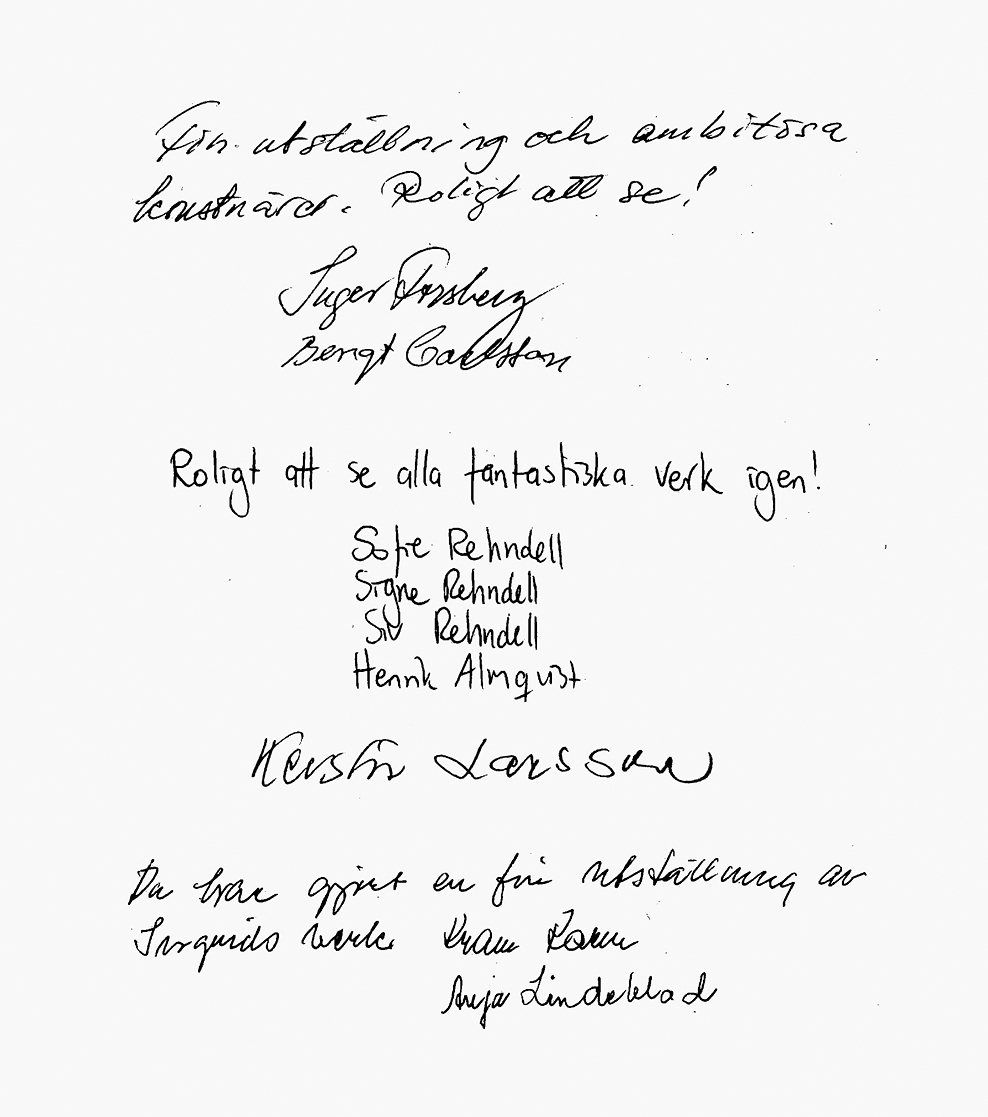 Fin utställning och ambitiösa
konstnärer. Roligt att se!
Inger Forsberg
Bengt Carlsson
Roligt att se alla fantastiska verk igen!
Sofie Rehndell
Signe Rehndell
Siv Rehndell
Henrik Almquist
Kerstin Larsson
Du har gjort en fin utställning av
Ingrids verk. Kram Karin
Anja Lindeblad